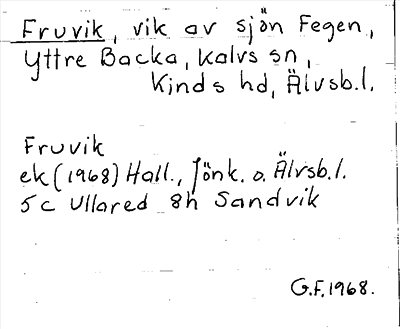 Fruvik, vik av sjön Fegen,
Yttre Backa, Kalvs sn,
Kinds hd, Älvsb.l.
Fruvik
ek (1968) Hall., Jönk. o. Älvsb.l.
5c Ullared 8h Sandvik
G.F. 1968.